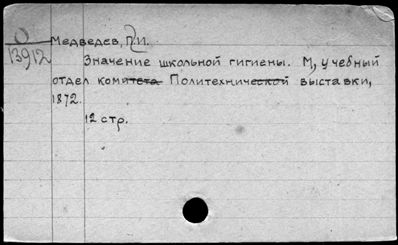 О
13912
Медведев, П.И.
Значение школьной гигиены. М, учебный
отдел комитета Политехнической выставки,
1872.
12 стр.